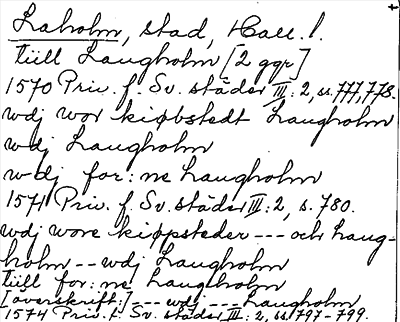 Laholm, stad, Hall. l.
tüll Laugholm [2 ggr]
1570 Priv. f. Sv. städer III: 2, ss. 777, 778.
wdj wor kiøbstedt Laugholm
wdj Laugholm
wdj for: ne Laugholm
1571 Priv. f. Sv. städer III: 2, s. 780.
wdj wore kiøpsteder --- och Laug-
holm -- wdj Laugholm
tüll for: ne Laugholm
[överskrift:] --- wdj --- Laugholm
1574 Priv. f. Sv. städer III: 2, ss. 797-799.